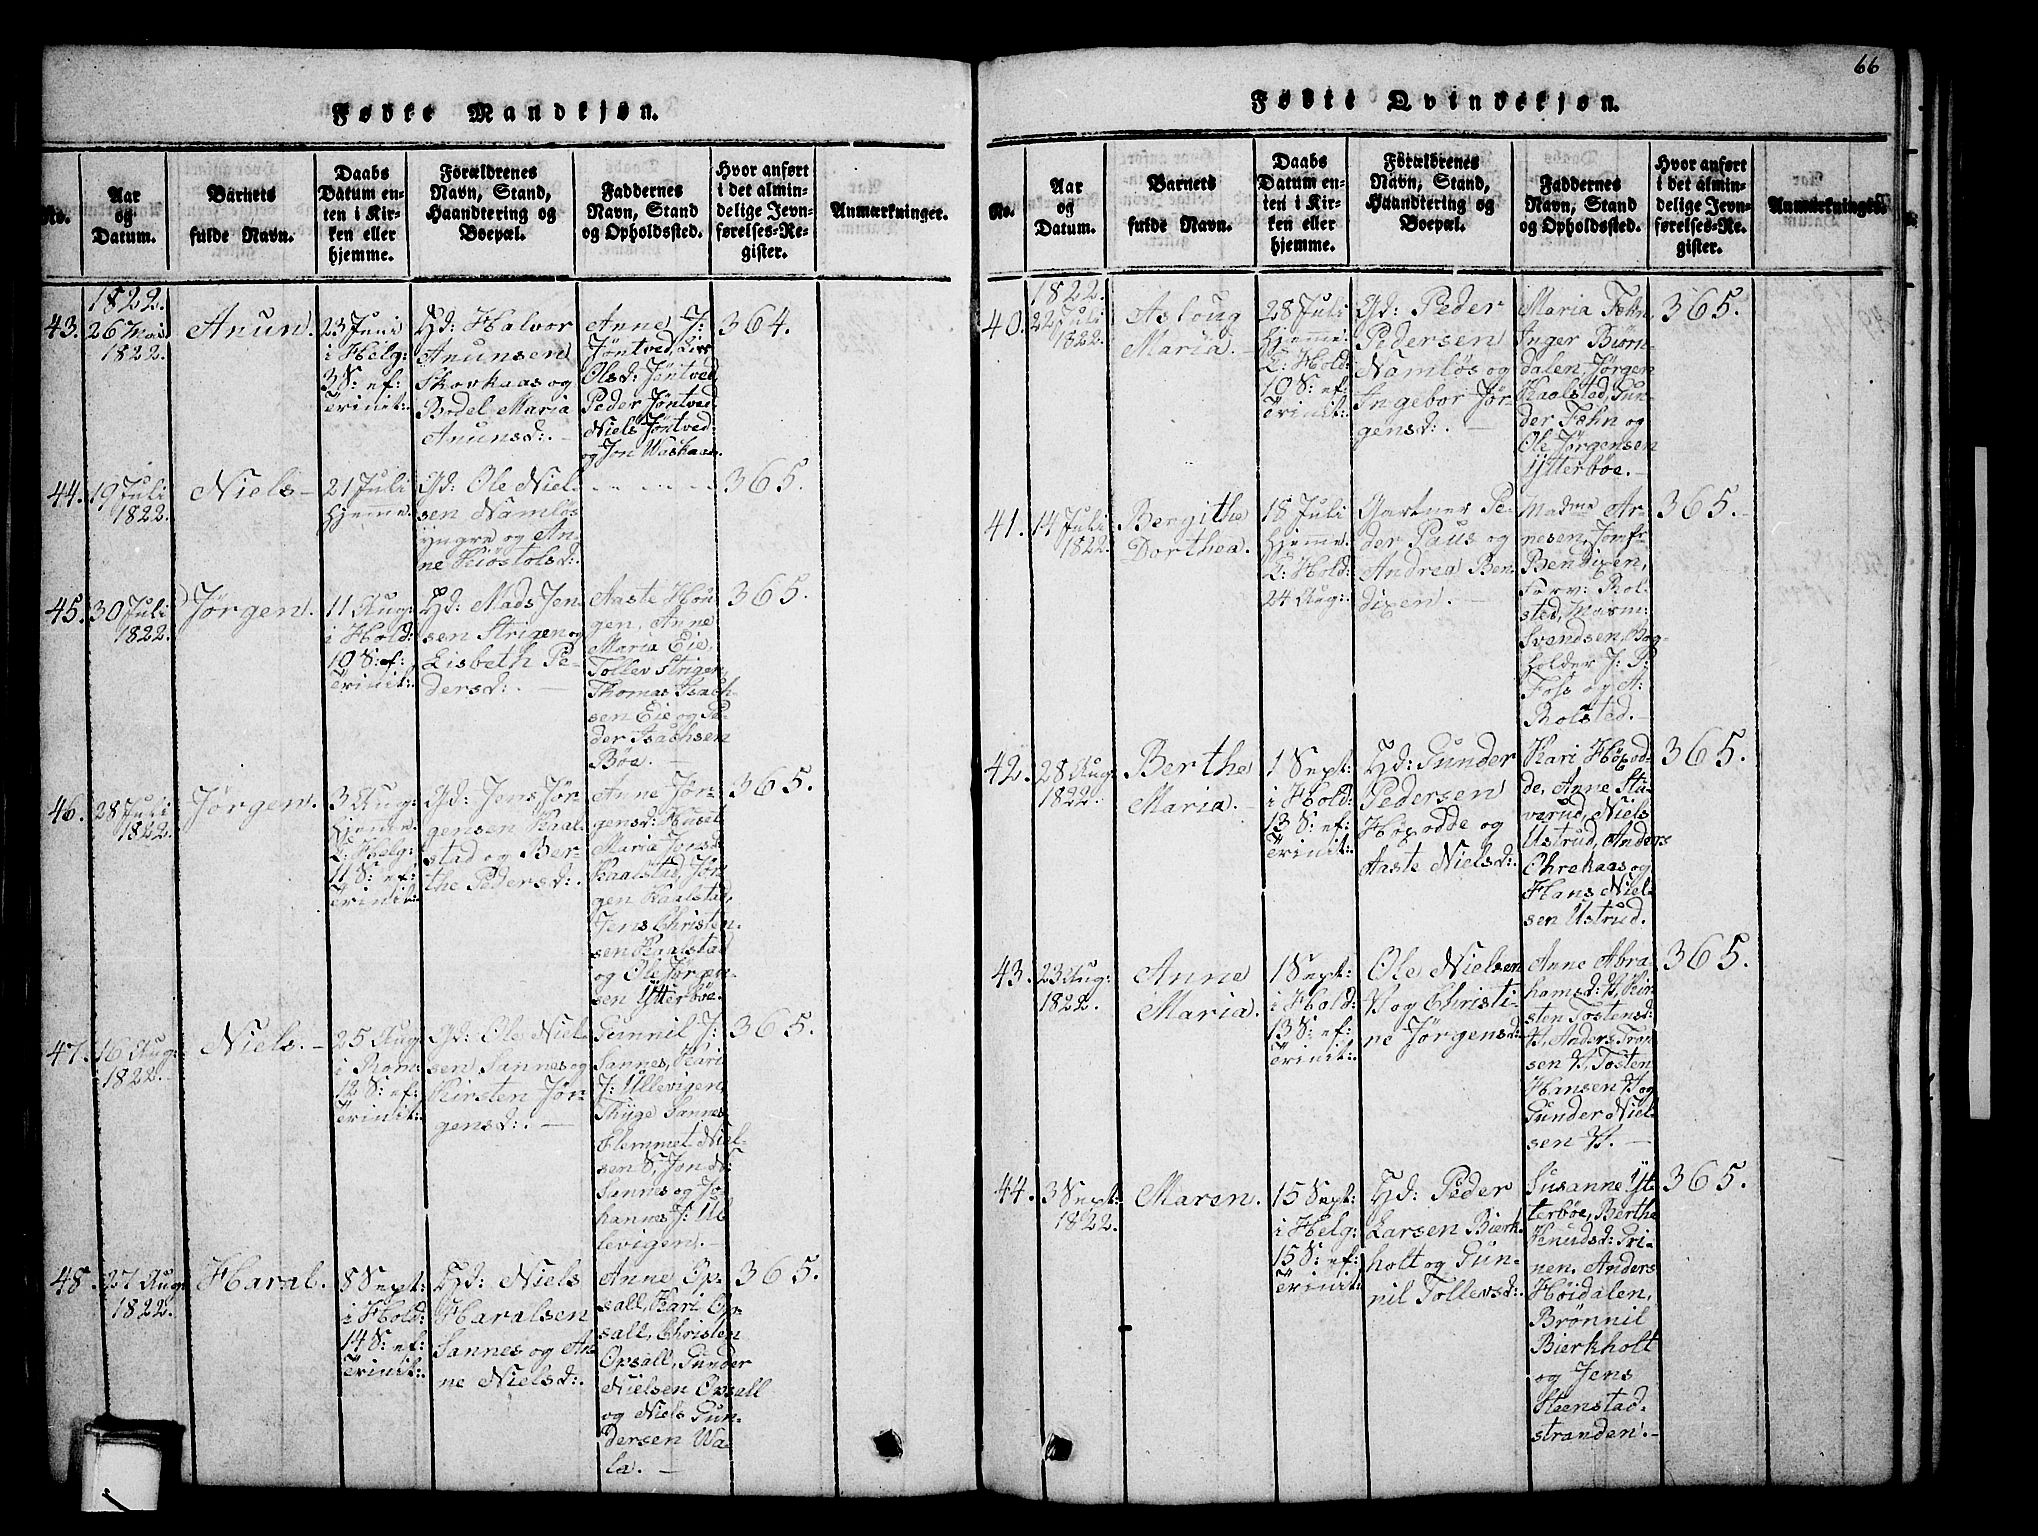 66
Fødte Mandkjøn.
No.
Aar
og
Datum.
Barnets
fulde Navn.
Daabs
Datum en-
ten i Kir-
ken eller
hjemme.
Forældrenes
Navn, Stand,
Haandtering og
Boepæl.
Faddernes
Navn, Stand
og Opholdssted.
Hvor anført
i det almin-
delige Jevn-
førelses-Re-
gister.
Anmærkninger.
43.
1822.
26 Mai
1822.
Anun.
23 Juni
i Helg:
3 S: ef:
Trinit:
Hd: Halvor
Anunsen
Skovkaas og
Bodel Maria
Anunsd:. –
Anne J:
Jöntved, Liv
Olsd: Jöntved,
Peder Jöntved
Niels Jöntved
og Jon Waskaas.
364.
44.
19 Juli
1822.
Niels –
21 Juli
hjemme.
Gd: Ole Niel-
sen Namløs
yngre og An-
ne Kiöstolsd:
- - - - -
365.
45.
30 Juli
1822.
Jörgen.
11 Aug:
i Hold:
10 S: ef:
Trinit:
Hd: Mads Jen-
sen Strigen og
Lisbeth Pe-
dersd:. –
Aaste Hou-
gen, Anne
Maria Eie,
Tollev Strigen,
Thomas Isach-
sen Eie og Pe-
der Isachsen
Böe. –
365.
46.
28 Juli
1822.
Jörgen.
3 Aug:
hjemme.
T: Helg:
11 S: ef:
Trinit:
Gd: Jens Jör-
gensen Kaal-
stad og Ber-
the Pedersd:.
Anne Jör-
gensd:
Maria Jensd:
Kaalstad, Jör-
gen Kaalstad,
Jens Christen-
sen Kaalstad
og Ole Jörgen-
sen Ytterböe.
365.
47.
16 Aug:
1822.
Niels. –
25 Aug
i Rom:
12 S: ef:
Trinit:
Gd: Ole Niel-
sen Sannes og
Kirsten Jör-
gensd:. –
Gunnil J:
Sannes, Kari
J: Ullevigen,
Thyge Sannes
Flemmet Niel-
sen S, Jon N:
Sannes og Jo-
hannes J: Ul-
levigen. –
365.
48.
27 Aug:
1822.
Haral.
8 Sept:
i Hold:
14 S: ef:
Trinit:
Hd: Niels
Haralsen
Sannes og An-
ne Nielsd:.
Anne Op-
sall, Kari Op-
sall, Christen
Opsall, Gunder
Nielsen Opsall
og Niels Gun-
dersen Wa-
la. –
365.
Fødte Qvindekjøn.
No.
Aar
og
Datum.
Barnets
fulde Navn.
Daabs
Datum en-
ten i Kir-
ken eller
hjemme.
Forældrenes
Navn, Stand,
Haandtering og
Boepæl.
Faddernes
Navn, Stand
og Opholdssted.
Hvor anført
i det almin-
delige Jevn-
førelses-Re-
gister.
Anmærkninger.
40.
1822.
22 Juli
1822.
Asloug
Maria. –
28 Juli
hjemme
T: Hold:
10 S: ef:
Trinit:
Gd: Peder
Pedersen
Namlös og
Ingebor Jör-
gensd:. –
Maria Fehn,
Inger Biörn-
dalen, Jörgen
Kaalstad, Gun-
der Fehn og
Ole Jörgensen
Ytterböe. –
365.
41.
14 Juli
1822.
Bergithe
Dorthea.
18 Juli
hjemme.
T: Hold:
24 Aug:
Gartner Pe-
der Paus og
Andrea Ben-
dixen. –
Madme Ar-
nesen, Jomfr:
Bendixen,
Forv: Rol-
sted,
Svendsen, Bog-
holder J: P:
Foss og A:
Rolsted. –
365. –
42.
28 Aug:
1822.
Berthe
Maria. –
1 Sept:
i Hold:
13 S: ef:
Trinit:
Hd: Gunder
Pedersen
Höxodde og
Aaste Nielsd:.
Kari Höxod-
de, Anne Sta-
verud, Niels
Ustrud, Anders
Ohrekaas og
Hans Niel-
sen Ustrud.
365.
43.
23 Aug:
1822.
Anne
Maria.
1 Sept:
i Hold:
13 S: ef:
Trinit:
Ole Nielsen
V og Christi-
ne Jörgensd:
Anne Abra-
hamsd: V, Kir-
sten Tostensd:
V, Anders Tron-
sen V, Tosten
Hansen V og
Gunder Niel-
sen V. –
365.
44.
3 Sept:
1822.
Maren.
15 Sept:
i Helg:
15 S: ef:
Trinit:
Hd: Peder
Larsen Bierk-
holt og Gun-
nil Tollevsd:.
Susanne Yt-
terböe, Berthe
Knudsd: Gri-
nen, Anders
Höidalen,
Brönnil
Bierkholt
og Jens
Steenstad-
stranden. –
365.